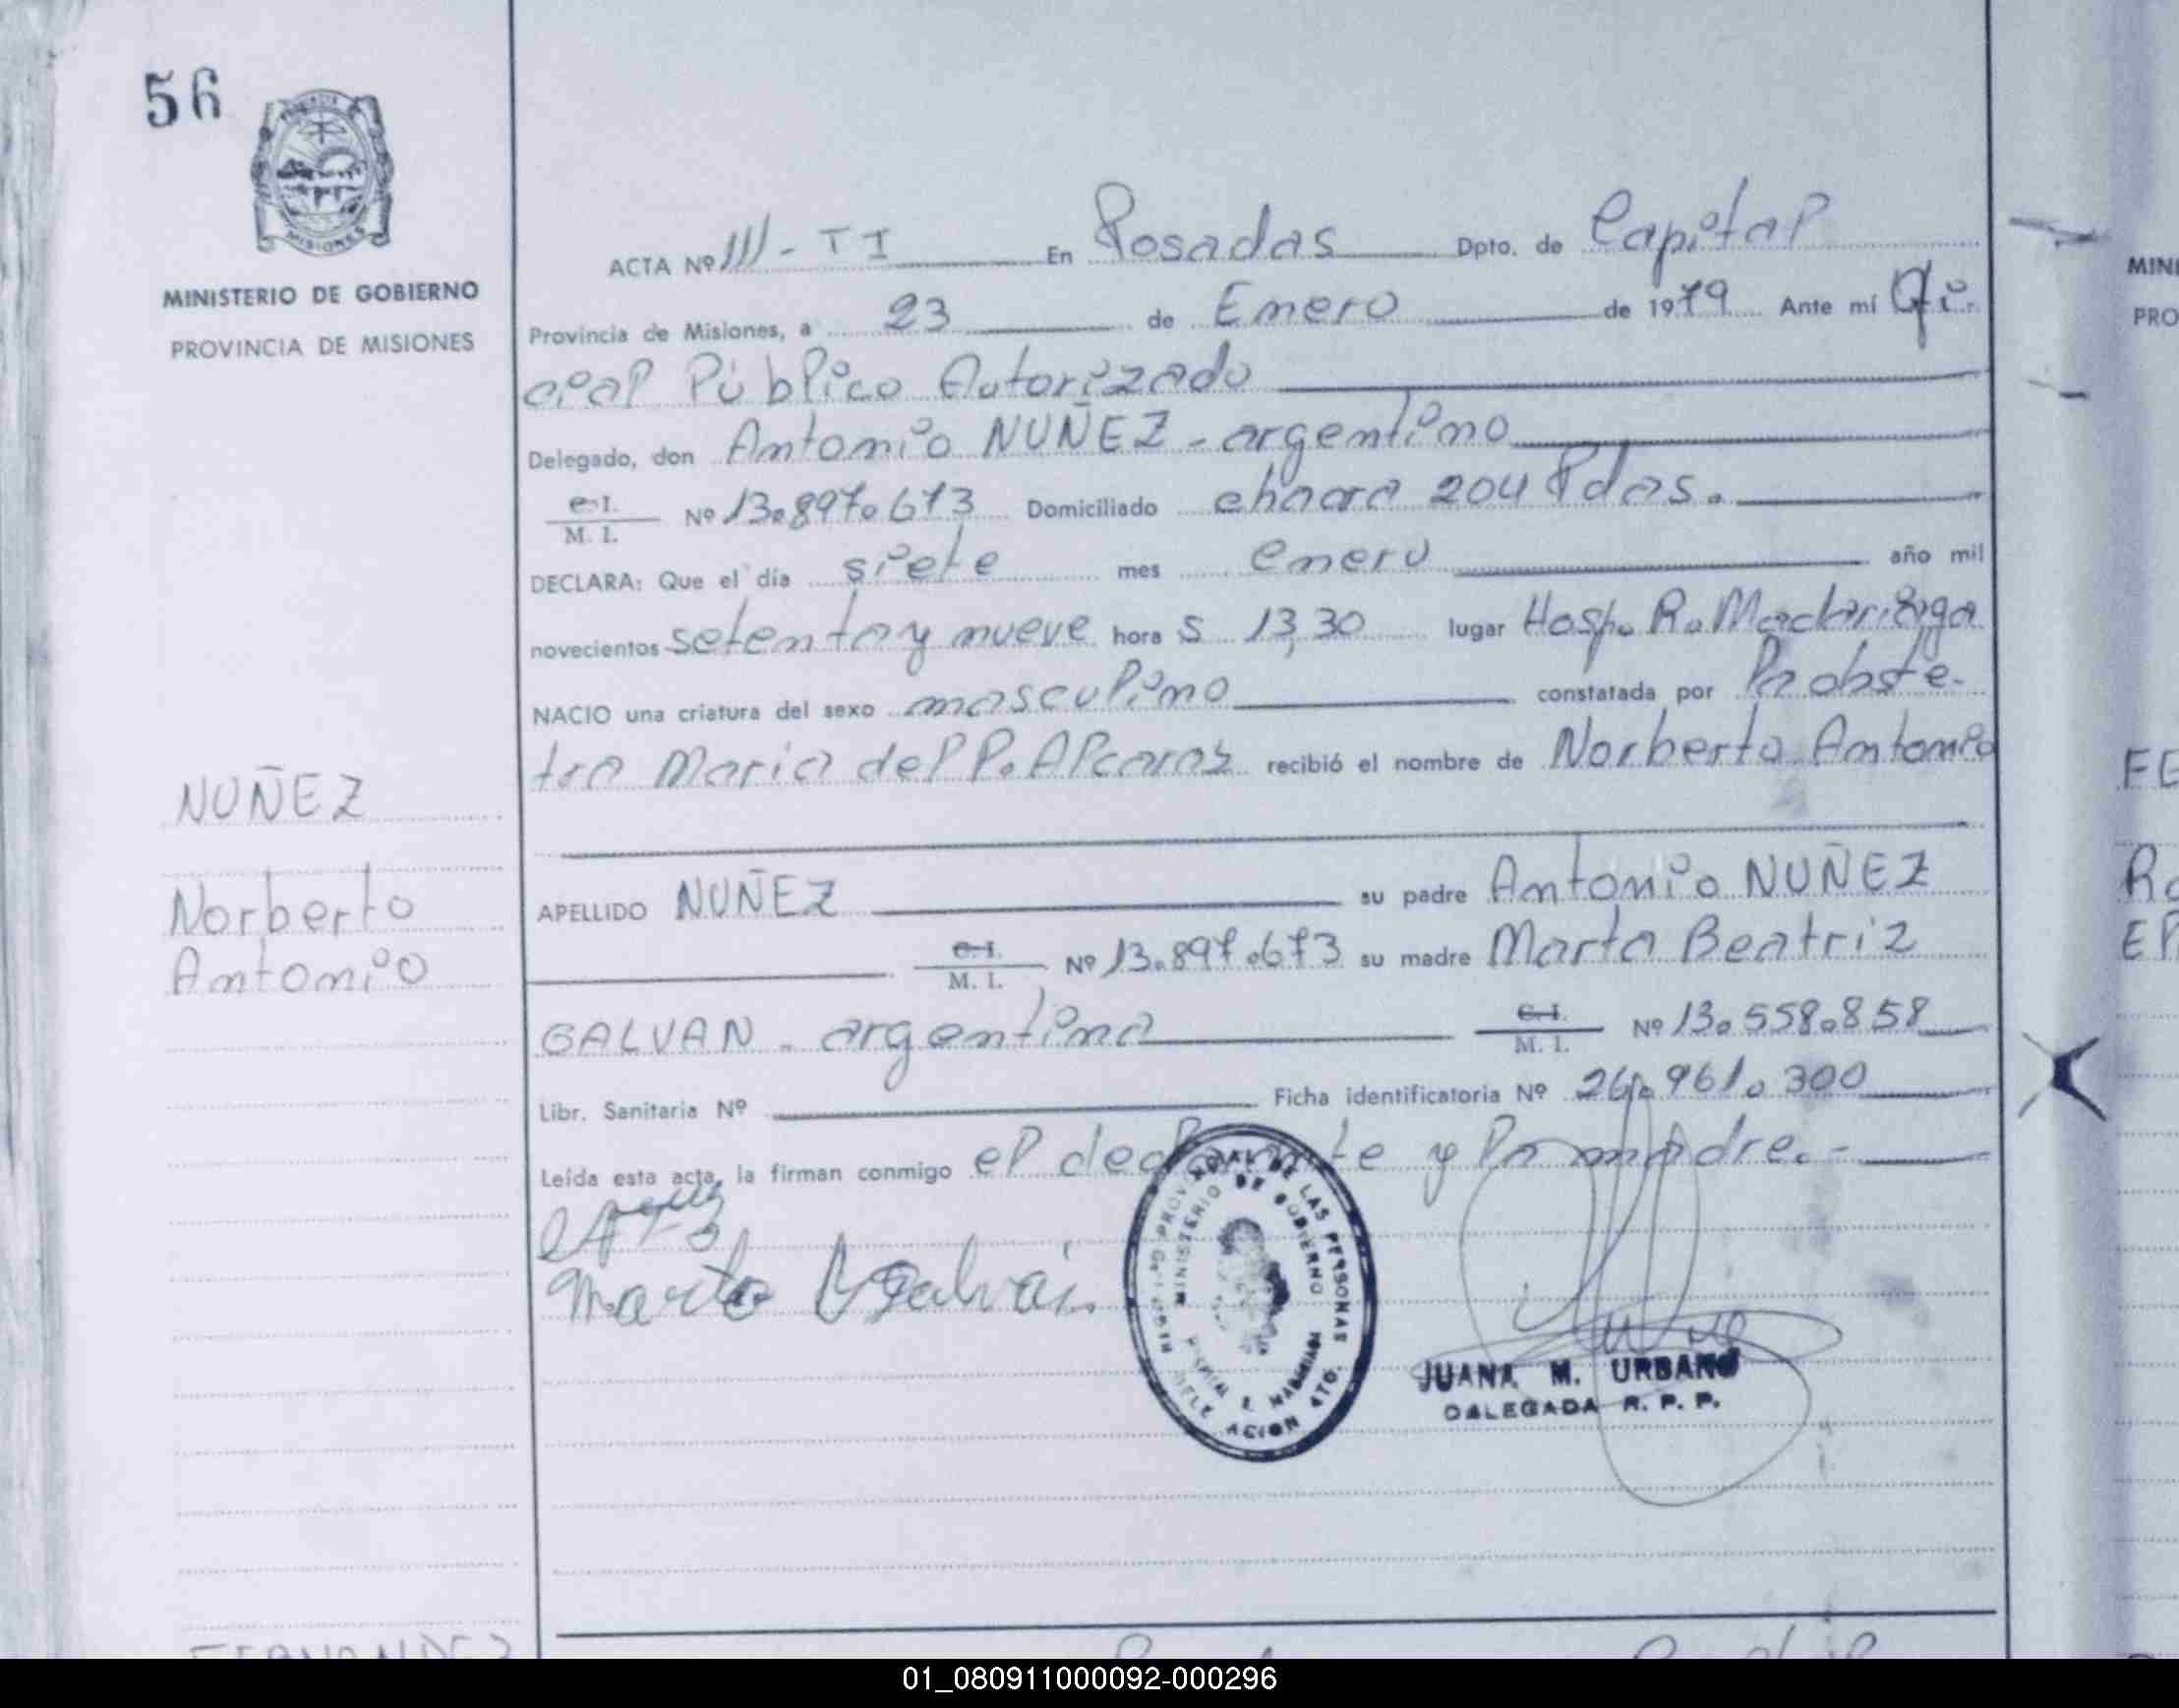 56
MISIONES
MINISTERIO DE GOBIERNO
PROVINCIA DE MISIONES
ACTA Nº 111 - T I En Posadas Dpto. de Capital
Provincia de Misiones, a 23 de Enero de 1979 Ante mí Ofi-
cial Público Autorizado
Delegado, don Antonio NUÑEZ - argentino
C. I. M. I. Nº 13.897.673 Domiciliado chacra 204 Pdas.
DECLARA: Que el día siete mes enero año mil
novecientos setenta y nueve hora s 13,30 lugar Hosp. R. Madariaga
NACIO una criatura del sexo masculino constatada por Pr obste-
tra Maria del P. Alcaraz recibió el nombre de Norberto Antonio
NUÑEZ
Norberto
Antonio
APELLIDO NUÑEZ su padre Antonio NUÑEZ
C. I. M. I. Nº 13.897.673 su madre Marta Beatriz
GALVAN - argentina C. I. M. I. Nº 13.558.858
Libr. Sanitaria Nº Ficha identificatoria Nº 26.961.300
Leída esta acta, la firman conmigo el declarante y la madre.-
Marta B Galván
DE LAS PERSONAS
MINISTERIO DE GOBIERNO
DELEGACION 4TO.
JUANA M. URBANO
DALEGADA R. P. P.
MINI
PRO
FE
Ro
EP
FERNANDEZ
01_080911000092-000296